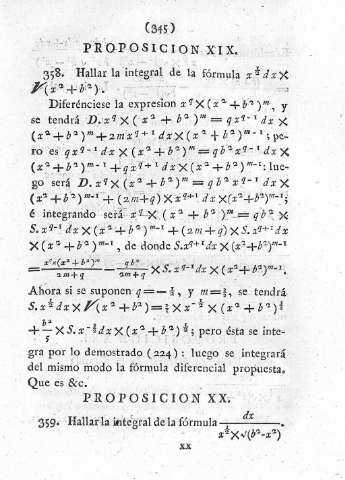 (345)
PROPOSICION XIX.
358. Hallar la integral de la fórmula x^½ dx ×
√(x²+b²).
Diferénciese la expresion x^q × (x²+b²)^m, y
se tendrá D.x^q × (x²+b²)^m = qx^{q-1}dx ×
(x²+b²)^m + 2mx^{q+1}dx × (x²+b²)^{m-1}; pe-
ro es qx^{q-1}dx × (x²+b²)^m = qb²x^{q-1}dx ×
(x²+b²)^{m-1} + qx^{q+1}dx × (x²+b²)^{m-1}: lue-
go será D.x^q × (x²+b²)^m = qb²x^{q-1}dx ×
(x²+b²)^{m-1} + (2m+q) × x^{q+1}dx × (x²+b²)^{m-1};
é integrando será x^q × (x²+b²)^m = qb² ×
S.x^{q-1}dx × (x²+b²)^{m-1} + (2m+q) × S.x^{q+1}dx
× (x²+b²)^{m-1}, de donde S.x^{q+1}dx × (x²+b²)^{m-1}
= x^q×(x²+b²)^m / 2m+q − qb² / 2m+q × S.x^{q-1}dx × (x²+b²)^{m-1}.
Ahora si se suponen q = −½, y m = 3/2, se tendrá
S.x^½ dx × √(x²+b²) = × x^{-½} × (x²+b²)
+ b²/5 × S.x dx × (x²+b²)^½; pero ésta se inte-
gra por lo demostrado (224): luego se integrará
del mismo modo la fórmula diferencial propuesta.
Que es &c.
PROPOSICION XX.
359. Hallar la integral de la fórmula dx / x^½ × √(b²-x²).
xx